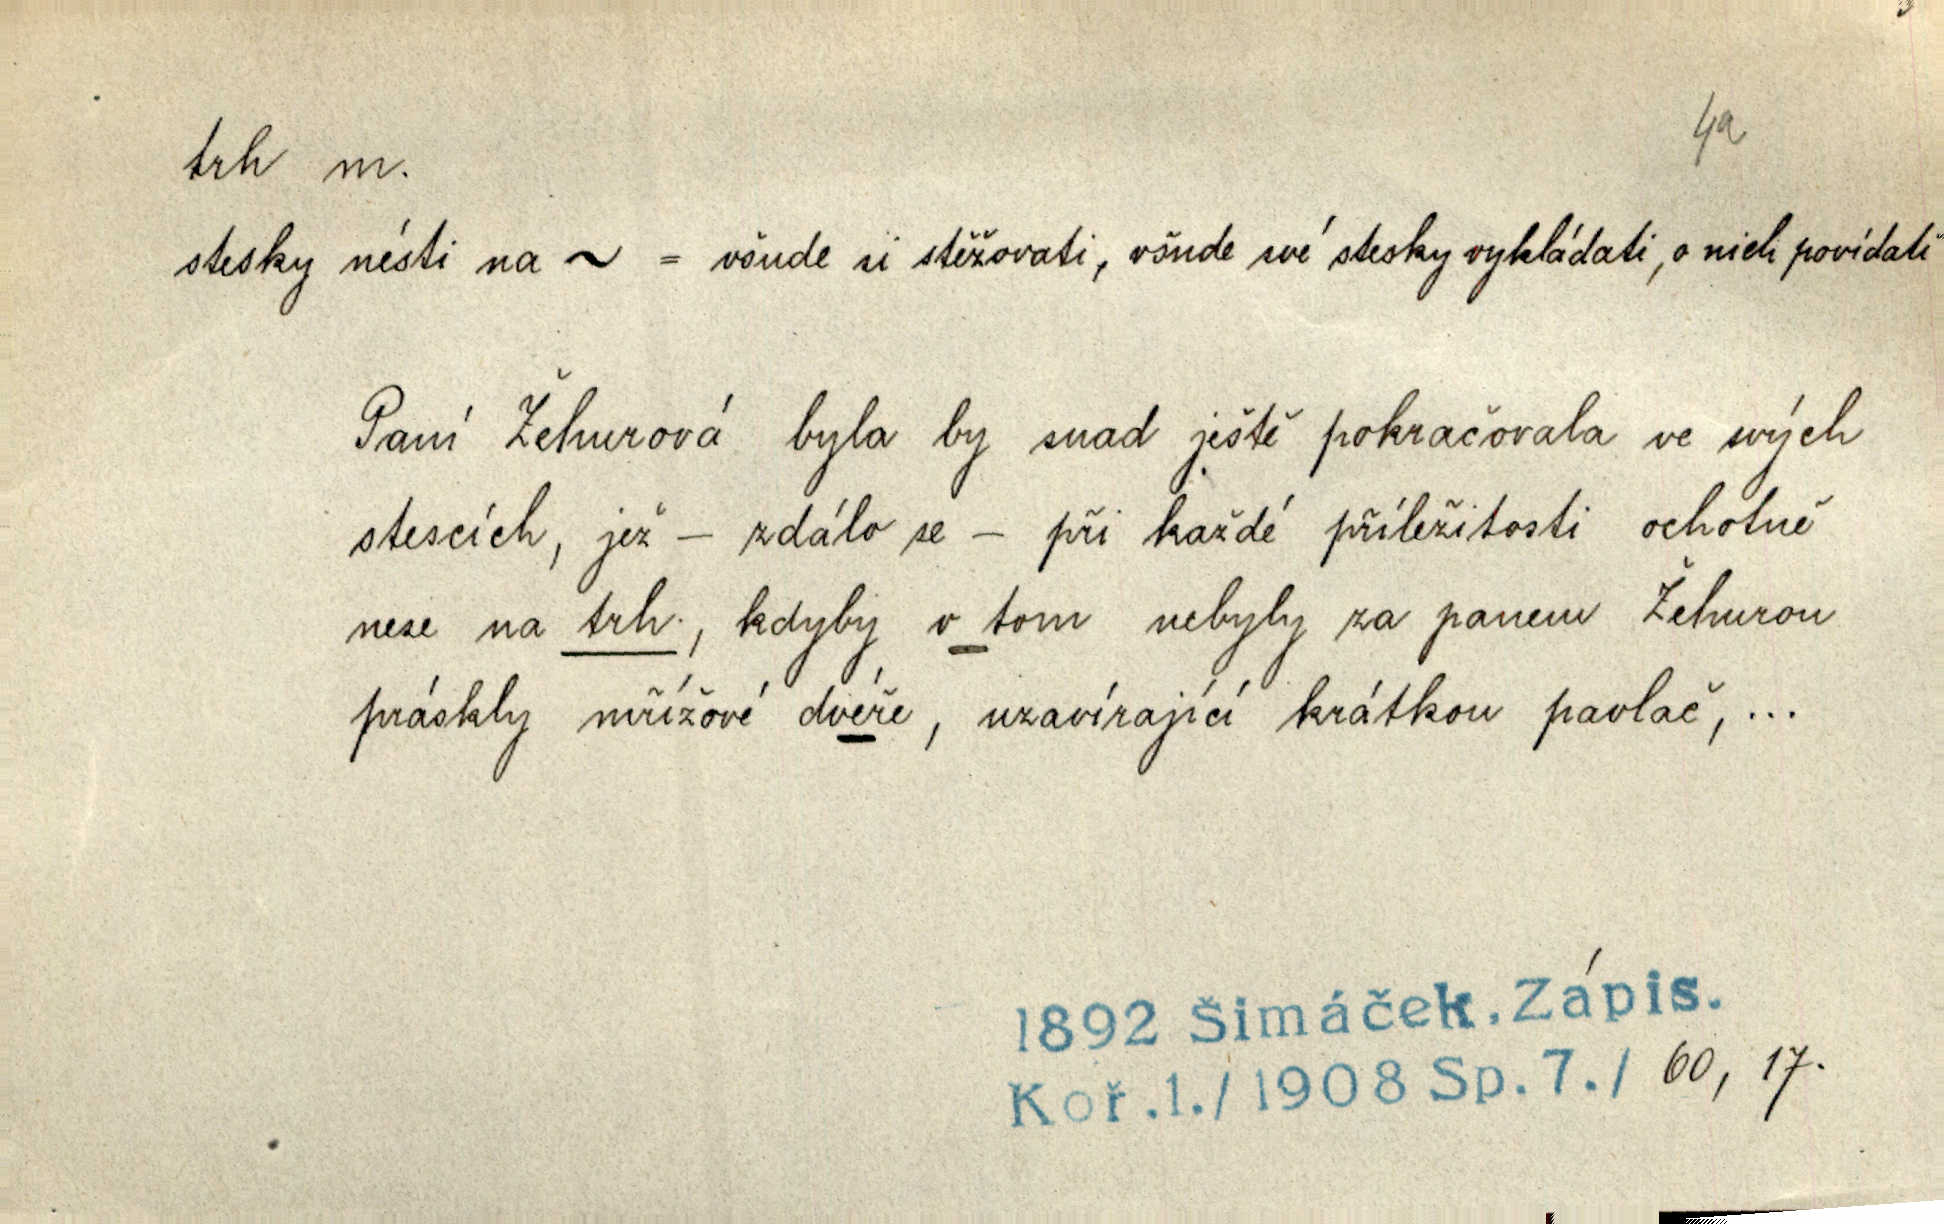 4a
trh m.
stesky nésti na ~ = všude si stěžovati, všude své stesky vykládati, o nich povídati
Paní Žehurová byla by snad ještě pokračovala ve svých
stescích, jež – zdálo se – při každé příležitosti ochotně
nese na trh, kdyby v tom nebyly za panem Žehurou
práskly mřížové dvéře, uzavírající krátkou pavlač, ...
1892 Šimáček. Zápis.
Koř.1./1908 Sp.7./ 60, 17.